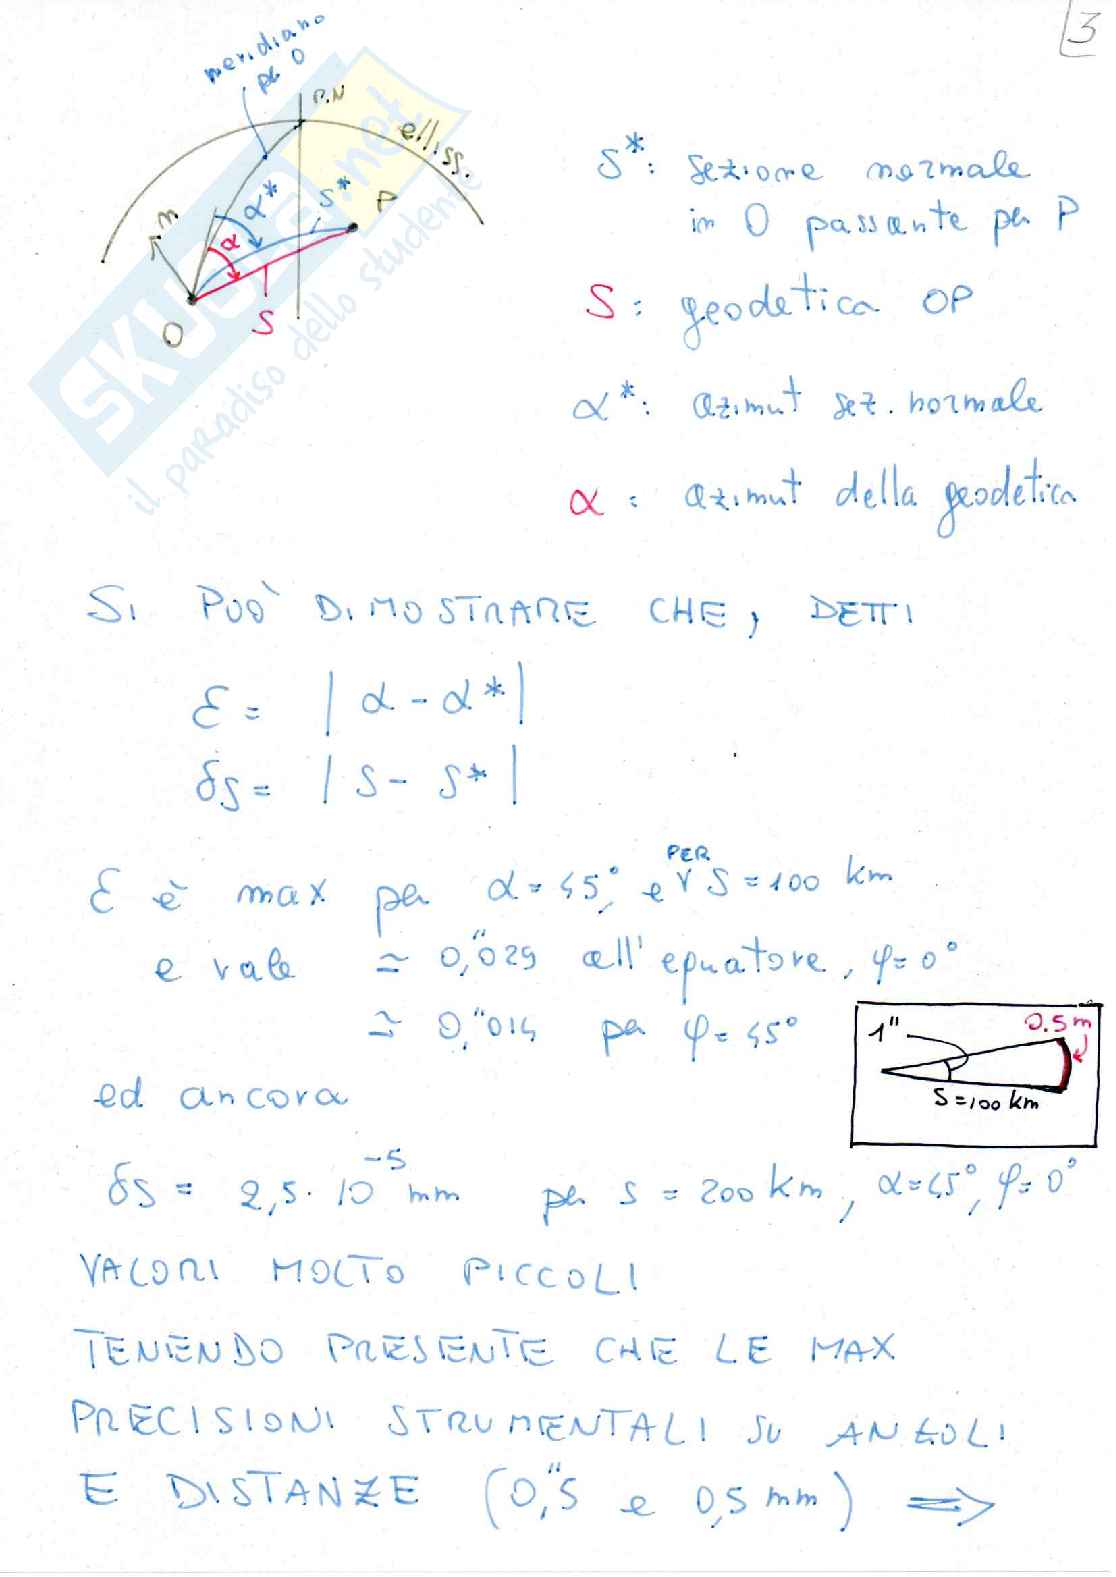 3
meridiano
per O
P.N
elliss.
n
α*
α
S*
P
O
S
SKUOLA.net
il paradiso dello studente
S*: sezione normale
in O passante per P
S: geodetica OP
α*: azimut sez. normale
α: azimut della geodetica
SI PUÒ DIMOSTRARE CHE, DETTI
ε = |α - α*|
δS = |S - S*|
ε è max per α = 45°, e PER S = 100 km
e vale ≃ 0,"029 all'equatore, φ = 0°
≃ 0,"014 per φ = 45°
1"
0.5 m
S = 100 km
ed ancora
δS = 2,5 · 10⁻⁵ mm per s = 200 km, α = 45°, φ = 0°
VALORI MOLTO PICCOLI
TENENDO PRESENTE CHE LE MAX
PRECISIONI STRUMENTALI SU ANGOLI
E DISTANZE (0,"5 e 0,5 mm) ⇒